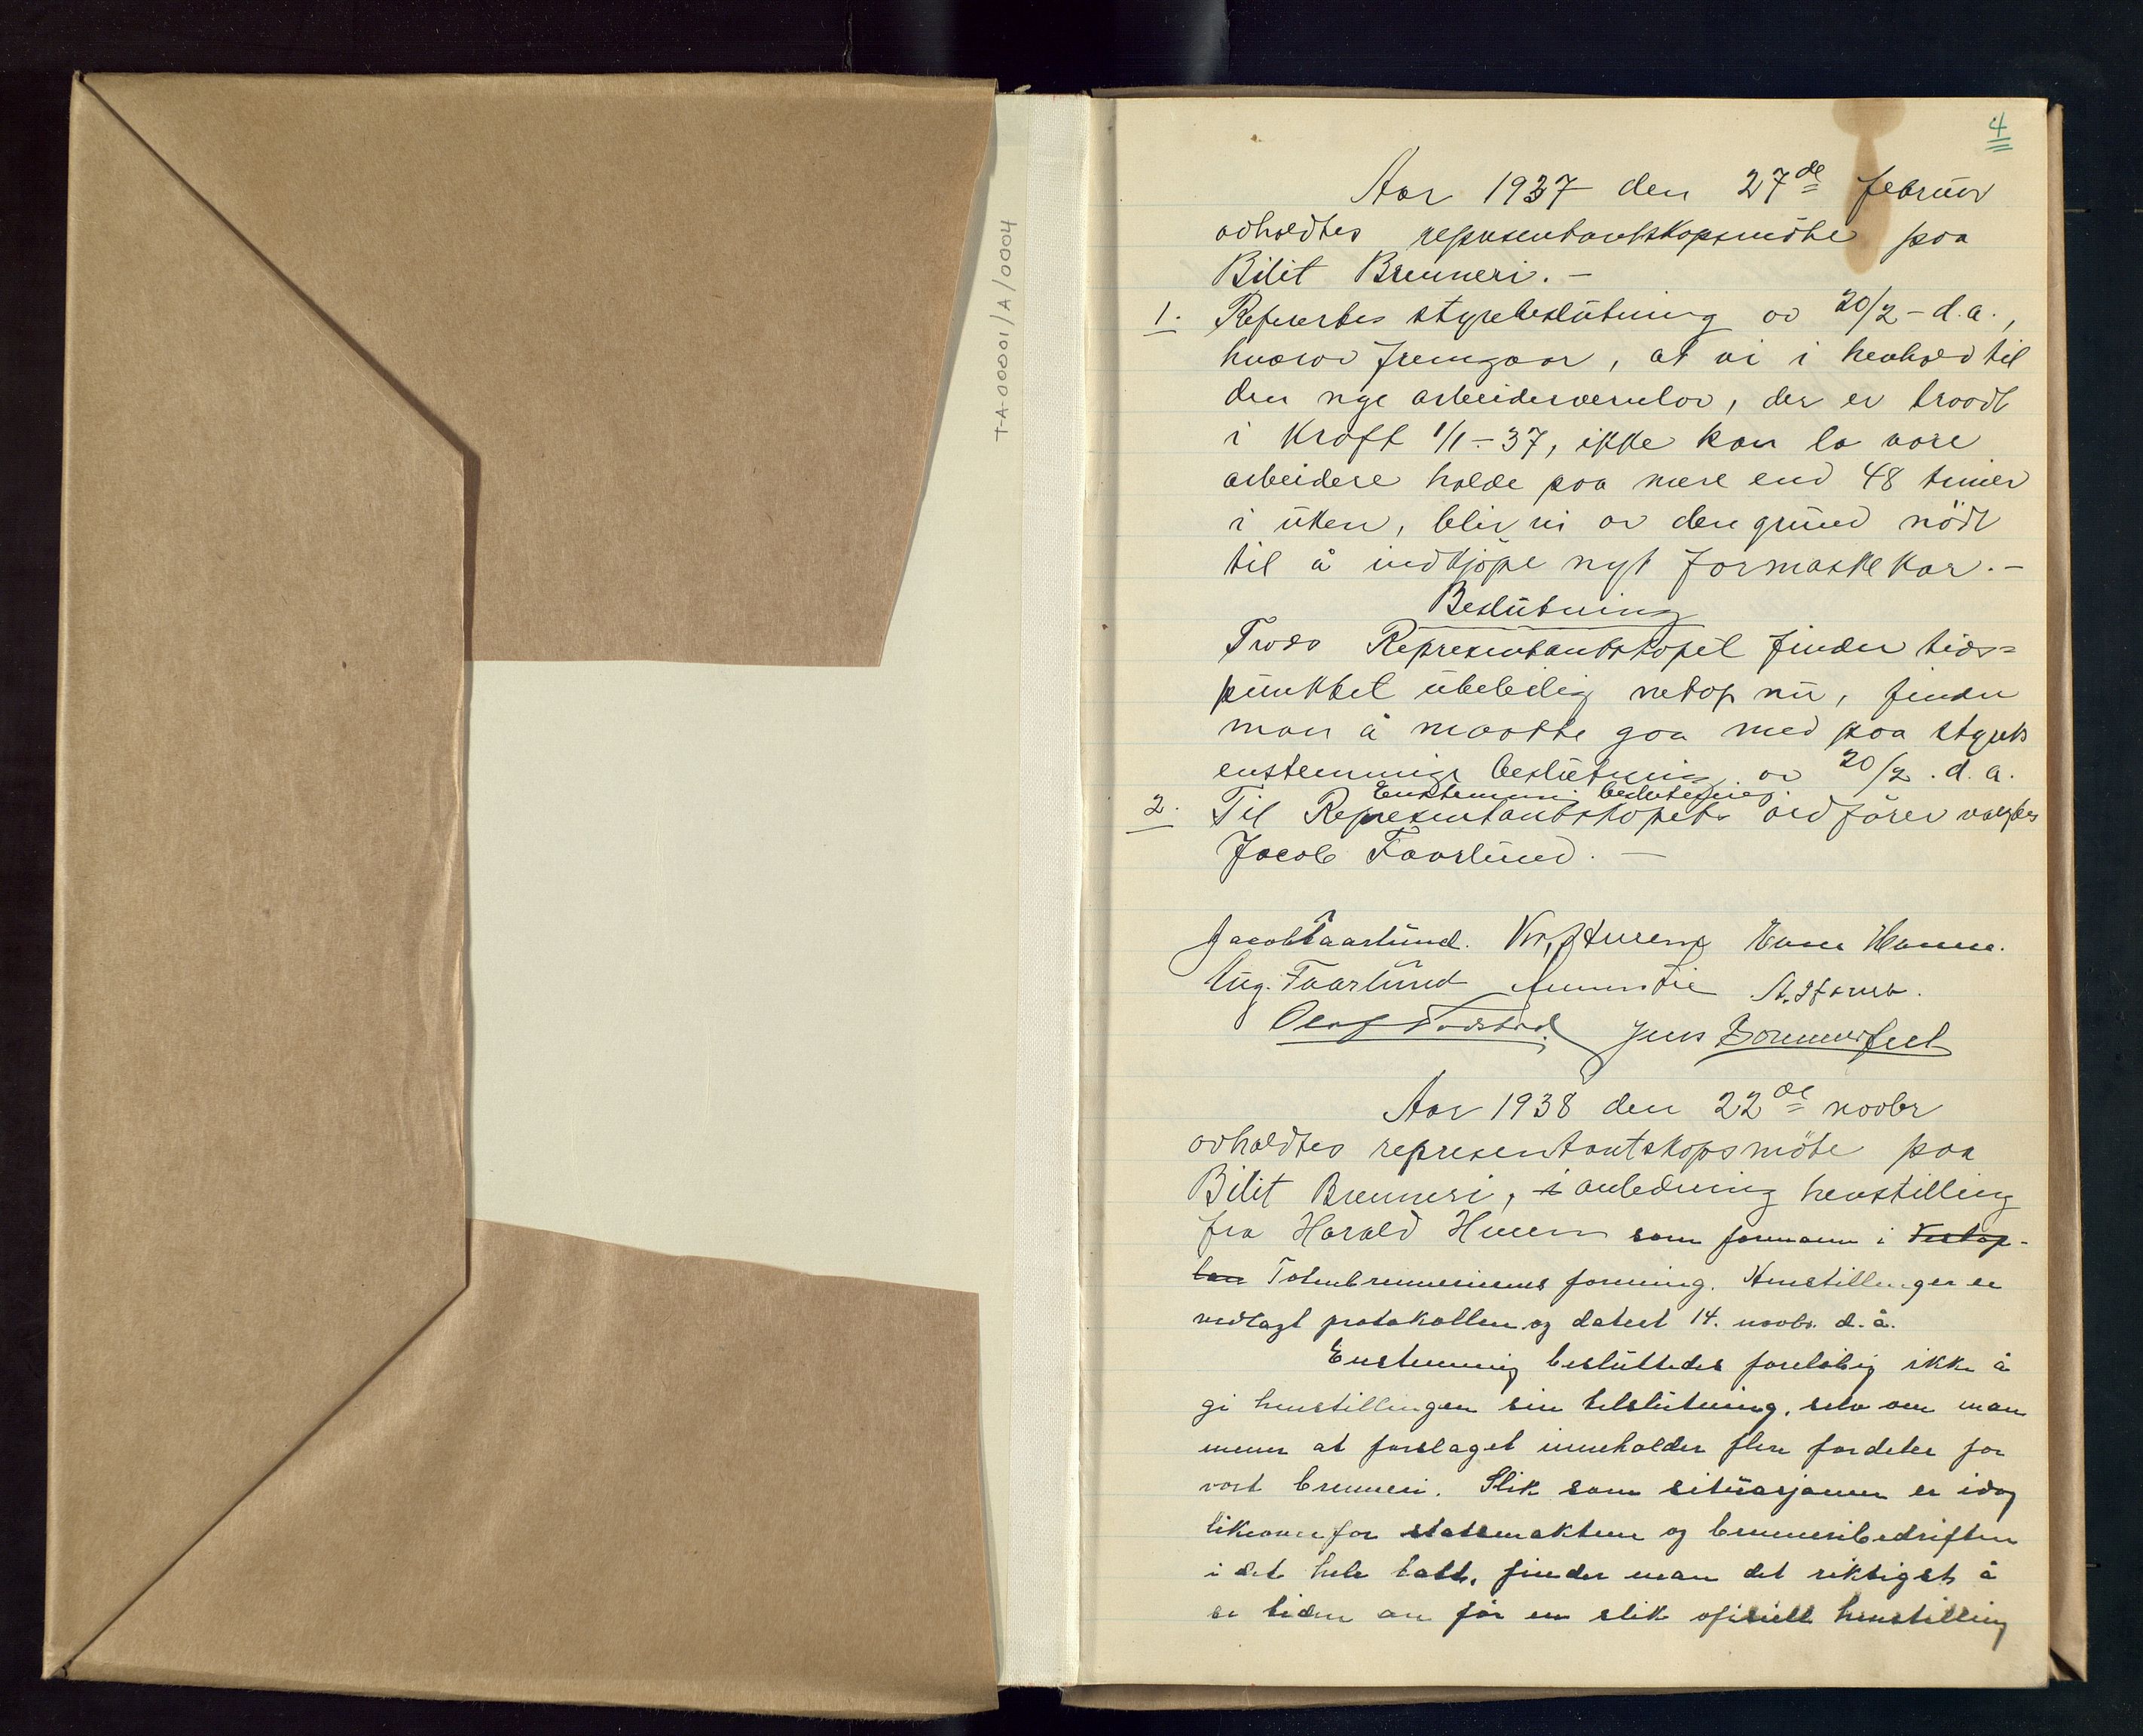 T-A-00001/A/0004
4
Aar 1937 den 27de februar
avholdtes representantskapsmöte paa
Bilit Brenneri. –
1. Refererbes styrebeslutning av 20/2 – d.a.,
hvorav fremgaar, at vi i henhold til
den nye arbeidervernlov, der er traadt
i kraft 1/1 – 37, ikke kan la vore
arbeidere holde paa mere end 48 timer
i uken, blir vi av den grund nödt
til å indkjöpe nyt formaskekar. –
Beslutning
Tross Representantskapet finder tids=
punktet ubeleilig netop nu, finder
man å maatte gaa med paa styrets
enstemmige beslutning av 20/2 . d.a.
Enstemmig beslutning.
2. Til Representantskapets ordförer valgtes
Jacob Faarlund. –
Jacob Faarlund.
Aug. Faarlund
Aar 1938 den 22de novbr
avholdtes representantskapsmöte paa
Bilit Brenneri, i anledning henstilling
fra Harald som formann i
Totenbrenneriernes forening. Henstillingen er
vedlagt protokollen og datert 14. novbr. d.å.
Enstemmig besluttedes foreløbig ikke å
gi henstillingen sin tilslutning, selv om man
mener at forslaget inneholder flere fordeler for
vort brenneri. Slik som situasjonen er idag
likeoverfor statsmaktene og brenneribedriften
i det hele tatt, finder man det riktigst å
se tiden an før en slik ofisiell henstilling